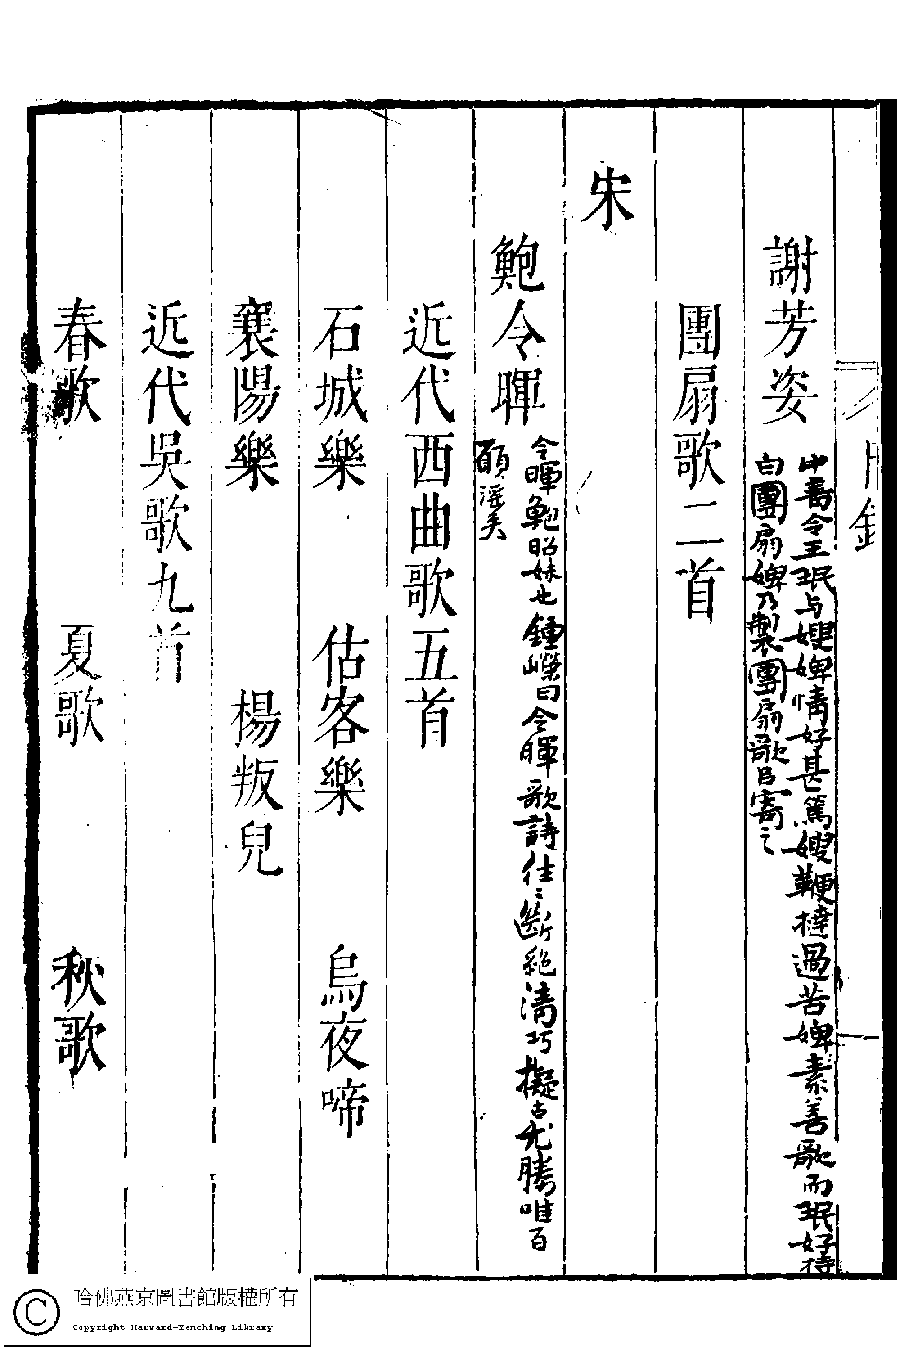 目錄
謝芳姿
中書令王珉与嫂婢情好甚篤嫂鞭撻過苦婢素善歌而珉好持
白團扇婢乃製團扇歌㠯寄之
團扇歌二首
宋
鮑令暉
令暉鮑昭妹也鍾嶸曰令暉歌詩往〻斷絶清巧擬古尤勝唯百
願淫矣
近代西曲歌五首
石城樂 估客樂 烏夜啼
襄陽樂 楊叛兒
近代吳歌九首
春歌 夏歌 秋歌
哈佛燕京圖書館版權所有
Copyright Harvard-Yenching Library